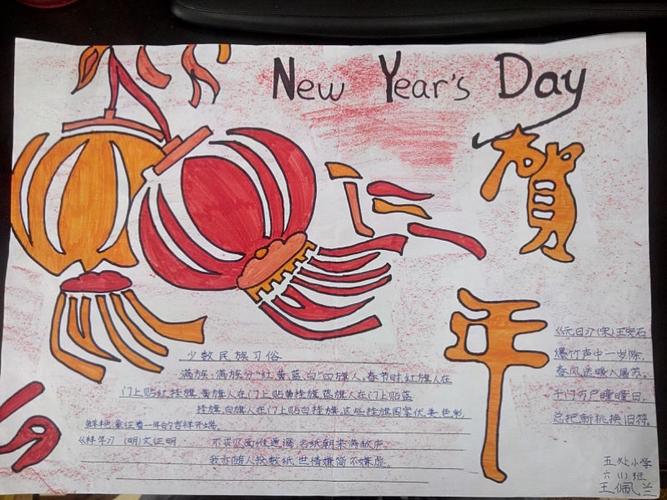 New Year's Day
賀
年
少数民族习俗
满族:满族分"红、黄、蓝、白"四旗人。春节时,红旗人在
门上贴红挂旗,黄旗人在门上贴黄挂旗,蓝旗人在门上贴蓝
挂旗,白旗人在门上贴白挂旗。这些挂旗图案优美,色彩
鲜艳,象征着一年的吉祥开端。
《拜年》 (明)文征明 不求见面惟通谒,名纸朝来满敝庐。
我亦随人投数纸,世情嫌简不嫌虚。
《元日》(宋)王安石
爆竹声中一岁除,
春风送暖入屠苏。
千门万户曈曈日,
总把新桃换旧符。
小学
六(1)班
王佩兰